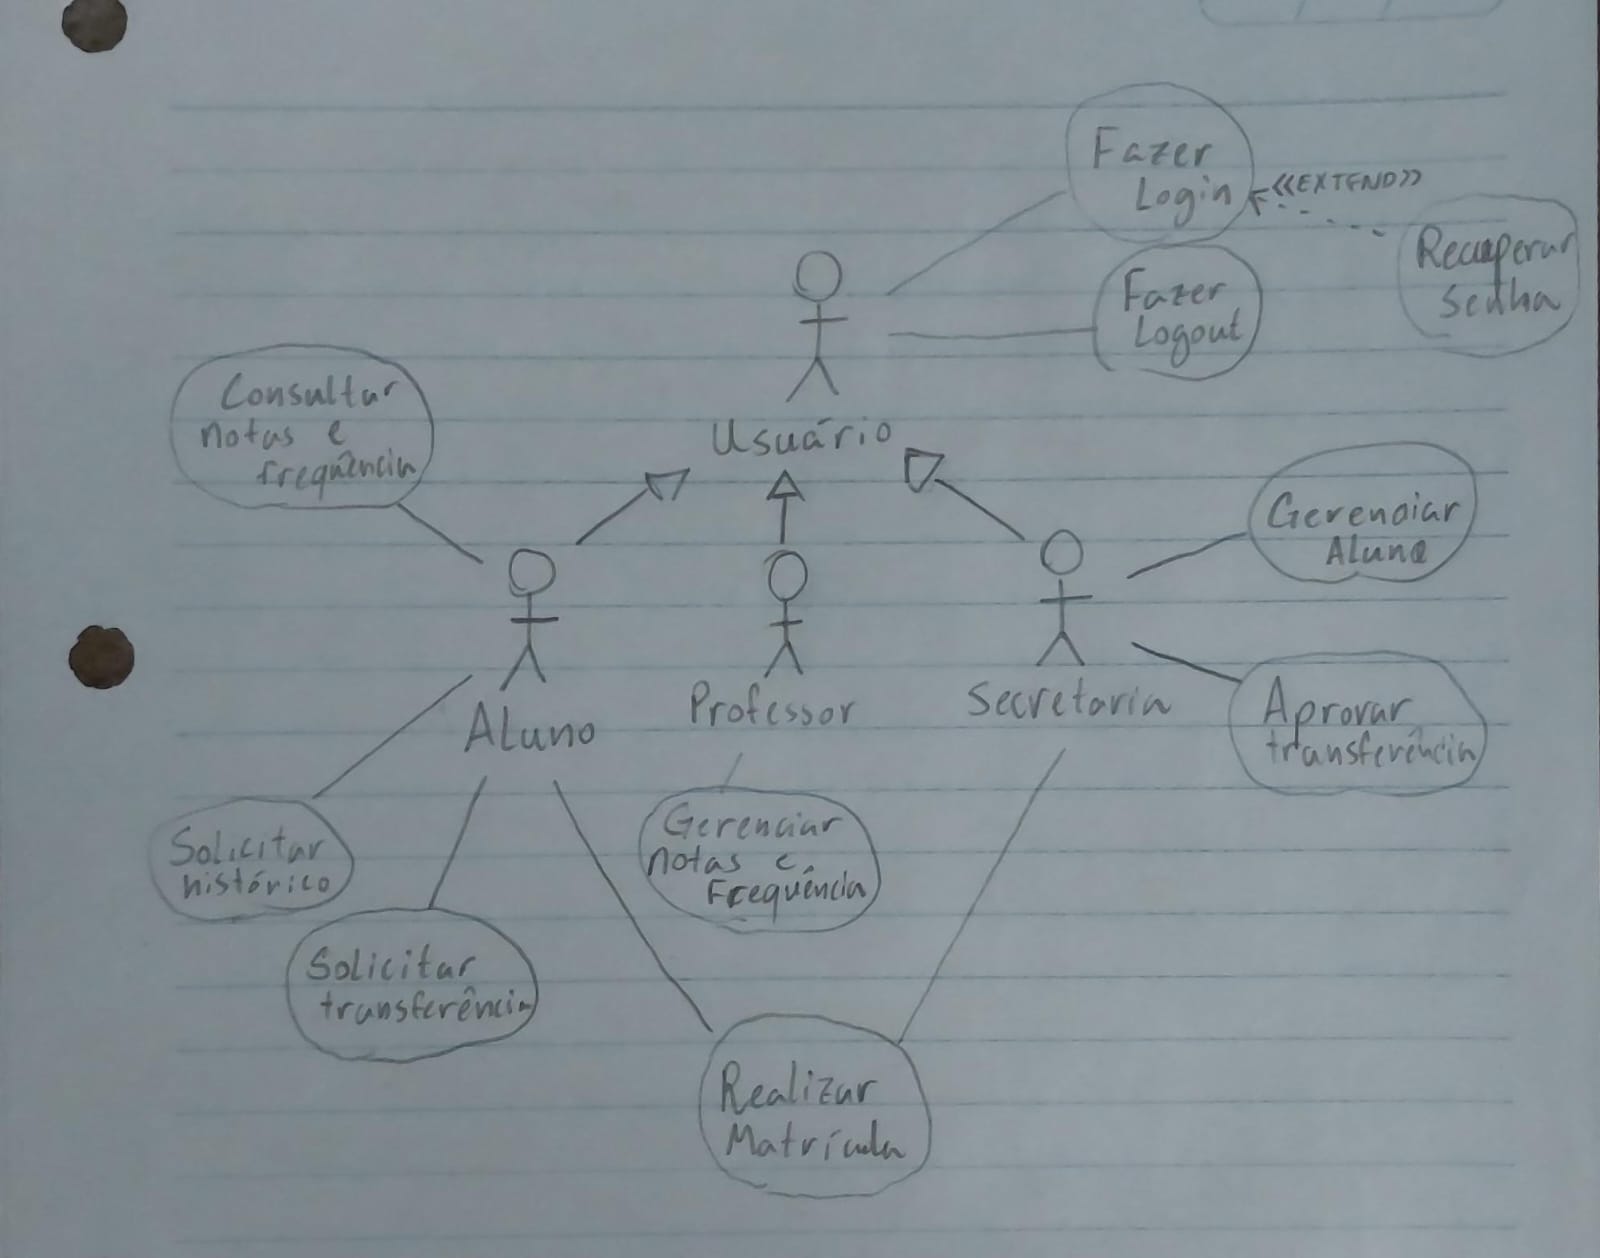 Fazer
Login
<<EXTEND>>
Recuperar
Senha
Fazer
Logout
Usuário
Consultar
notas e
frequência
Gerenciar
Aluno
Aluno
Professor
Secretaria
Aprovar
transferência
Solicitar
histórico
Gerenciar
notas e
Frequência
Solicitar
transferência
Realizar
Matrícula